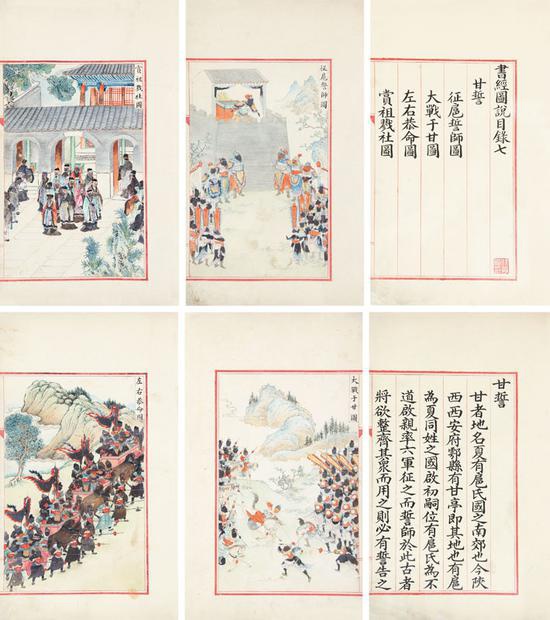 書經圖說目錄七
甘誓
征扈誓師圖
大戰于甘圖
左右恭命圖
賞祖戮社圖
征扈誓師圖
賞祖戮社圖
甘誓
甘者地名夏有扈氏國之南郊也今陝
西西安府鄠縣有甘亭即其地也有扈
為夏同姓之國啟初嗣位有扈氏為不
道啟親率六軍征之而誓師於此古者
將欲整齊其眾而用之則必有誓告之
大戰于甘圖
左右恭命圖